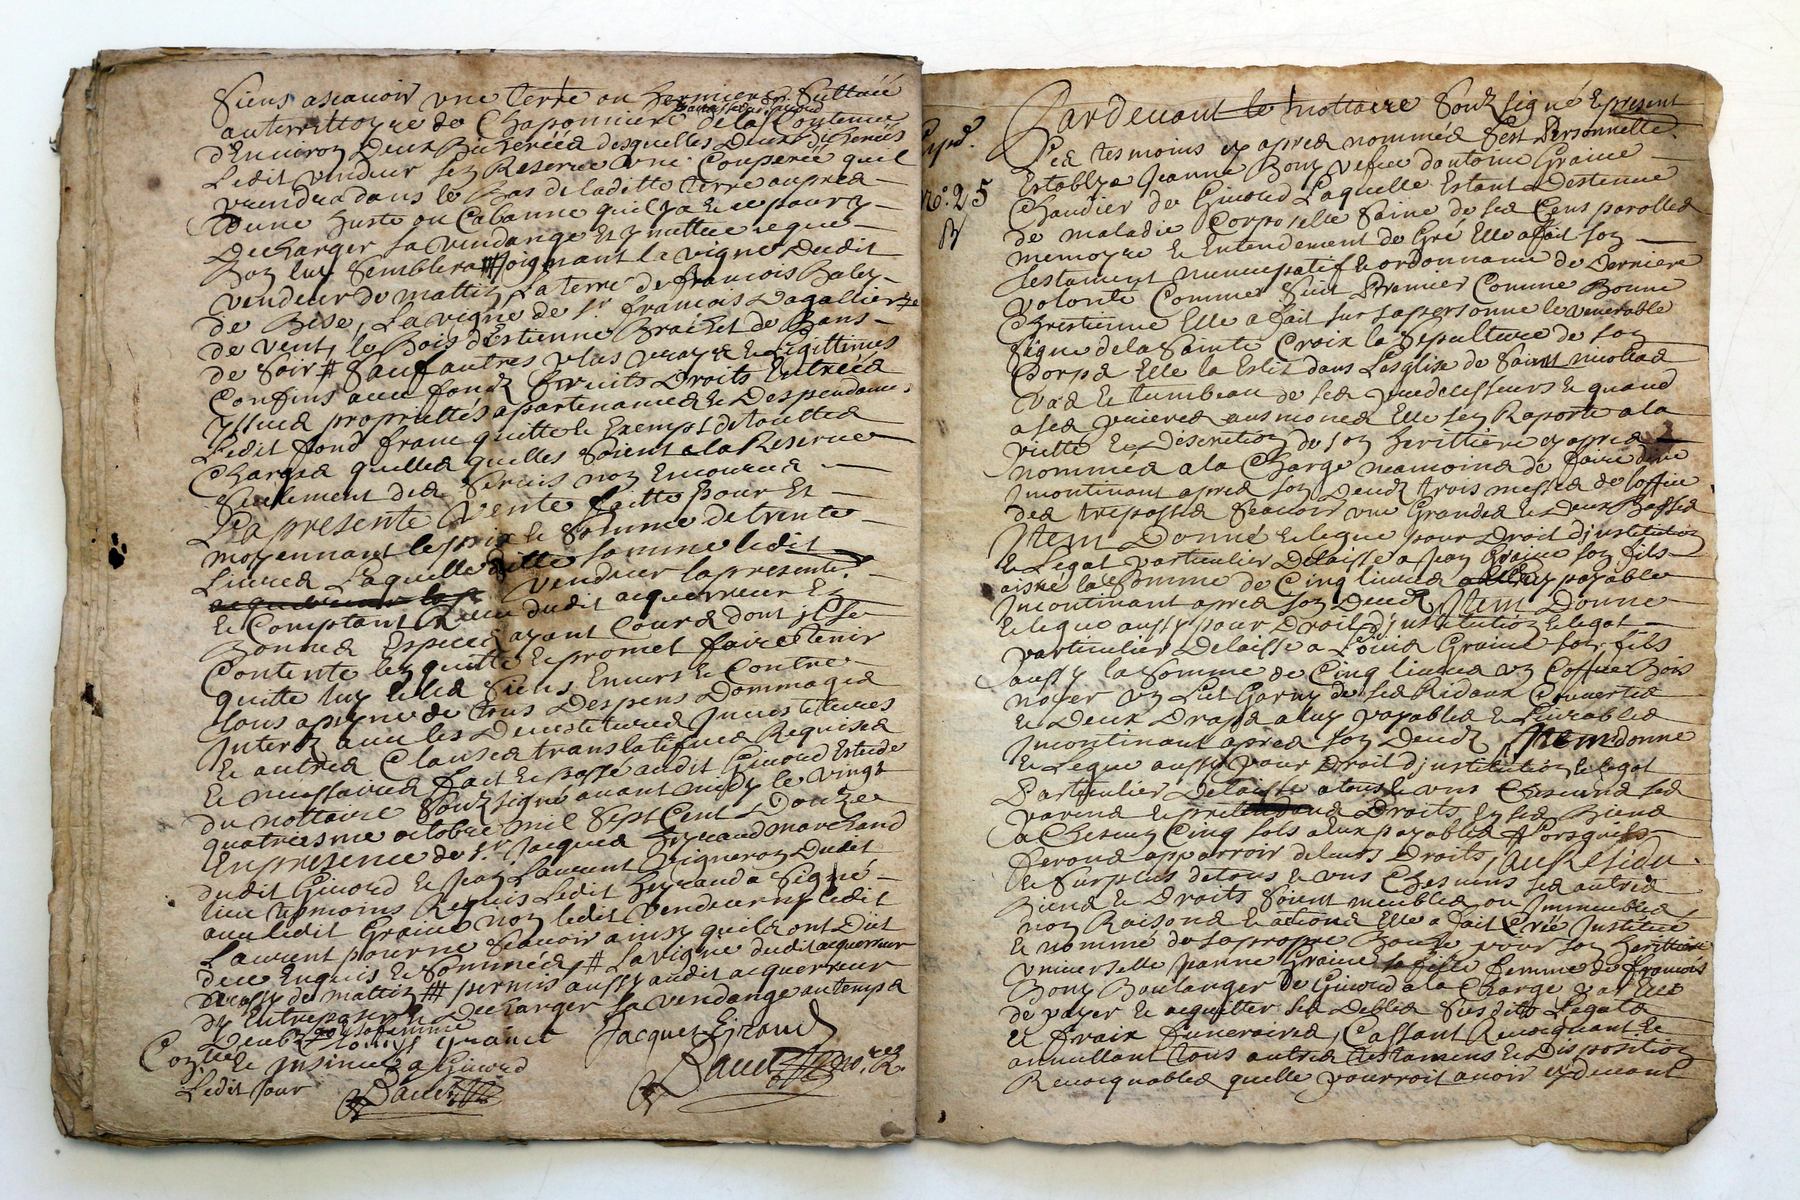 Siens ascauoir vne terre ou hermiere scittuée
au territtoyre de Chaponniere de la Contenue
d'Enuiron deux Bicherées desquelles deux Bicherées
Ledit vendeur sen Reserue vne Couperée quil
prendra dans le Bas de laditte terre aupres
dune hutte ou Cabanne quil y a et ce pour y
decharger sa vendange et y mettre ce que
Bon luy semblera # joignant la vigne dudit
vendeur de mattin, La terre de francois Baley
de Bise, La vigne de Sr. francois Dagallier
de vent, le Bois d'estienne Brachet de Bans
de soir # sauf autres plus vrays & Legittimes
Confins auec fondz fruits Droits Entrées
yssues proprietés appartenances & Despendances
Ledit fond franc quitte & Exempt de touttes
Charges quelles quelles soient a la Reserue
seulement des seruis non Encourus
La presente vente faitte pour Et
moyennant le prix & somme de trente
Liures Laquelle ditte somme ledit
vendeur la presente
& Comptant Receu dudit acquerreur En
Bonnes Especes ayant Cours dont jl se
Contente len quitte & promet faire tenir
quitte luy & les siens Enuers & Contre
tous a peyne de tous Despens Dommages
Interetz auec les deuestitures Inuestitures
& autres Clauses translatiues Requises
& necessaires fait & passé audit Giuord Estude
du nottaire soubzsigné auant midy le vingt
quatriesme octobre mil sept cent Douze
En presence de Sr. Jacques marchand
dudit Giuord & Jean Laurent vigneron dudit
lieu tesmoins Requis Ledit a signé
auec ledit Graine non ledit vendeur ny ledit
Laurent pour ne scauoir ainsy quilz ont Dit
de ce Enquis & sommés # La vigne dudit acquerreur
aussy de mattin # permis aussy audit acquerreur
dy Entreposer & decharger sa vendange au temps
Jacques
Con.lle & insinué a Giuord
Ledit jour
Expd.
no. 25
Pardeuant le nottaire soubzsigné & present
Les tesmoins cy apres nommés s'est Personnelle.
Establye Jeanne Bony vefue dantoine Graine
Chandier de Giuord Laquelle Estant Destenue
de maladie Corporelle saine de ses sens parolles
memoyre & Entendement de Gré Elle a fait son
testament nuncupatif & ordonnance de derniere
volonté Comme suit Premier Comme Bonne
Chrestienne Elle a fait sur sa personne le venerable
signe de la sainte Croix la sepulture de son
Corps Elle la Eslit dans Lesglise de saint nicolas
& tumbeau de ses predecesseurs & quand
a ses prieres aumosnes Elle sen Raporte a la
pieté & Descretion de son herittiere cy apres
nommées a la Charge neamoins de faire dire
Incontinant apres son Decedz trois messes de loffice
des trepassés scauoir vne Grandes & deux Basses
Item Donne & legue pour Droit djnstitution
& Legat particulier Delaisse a Jean Graine son fils
aisné la somme de Cinq liures payable
Incontinant apres son Decedz Item Donne
& legue aussy pour Droit djnstitution & legat
particulier Delaisse a Louis Graine son fils
aussy la somme de Cinq liures vn Coffre Bois
noyer vn Lict Garny de ses Ridaux Couuertes
& Deux Draps a luy payables & Liurables
Incontinant apres son Decedz Item donne
& Legue aussy pour Droit djnstitution & legat
Particulier Delaisse a tous & vns Chescuns ses
parens & pretendans Droits En ses Biens
a Chescun Cinq sols a Eux payables Lorsquils
feront apparroir de leurs Droits, au Residu
& surplus de tous & vns Chescuns ses autres
Biens & Droits soient meubles ou Immeubles
nom Raisons & actions Elle a fait Créé Justitué
& nommé de sa propre Bouche pour son herittiere
vniuerselle Jeanne Graine sa fille femme de francois
Bony Boulanger de Giuord a la Charge par Elle
de payer & acquitter ses Debtes susdits Legats
& fraix funeraires, Cassant Reuocquant &
annullant tous autres testamens & Disposition
Reuocquables quelle pourroit auoir cy deuant